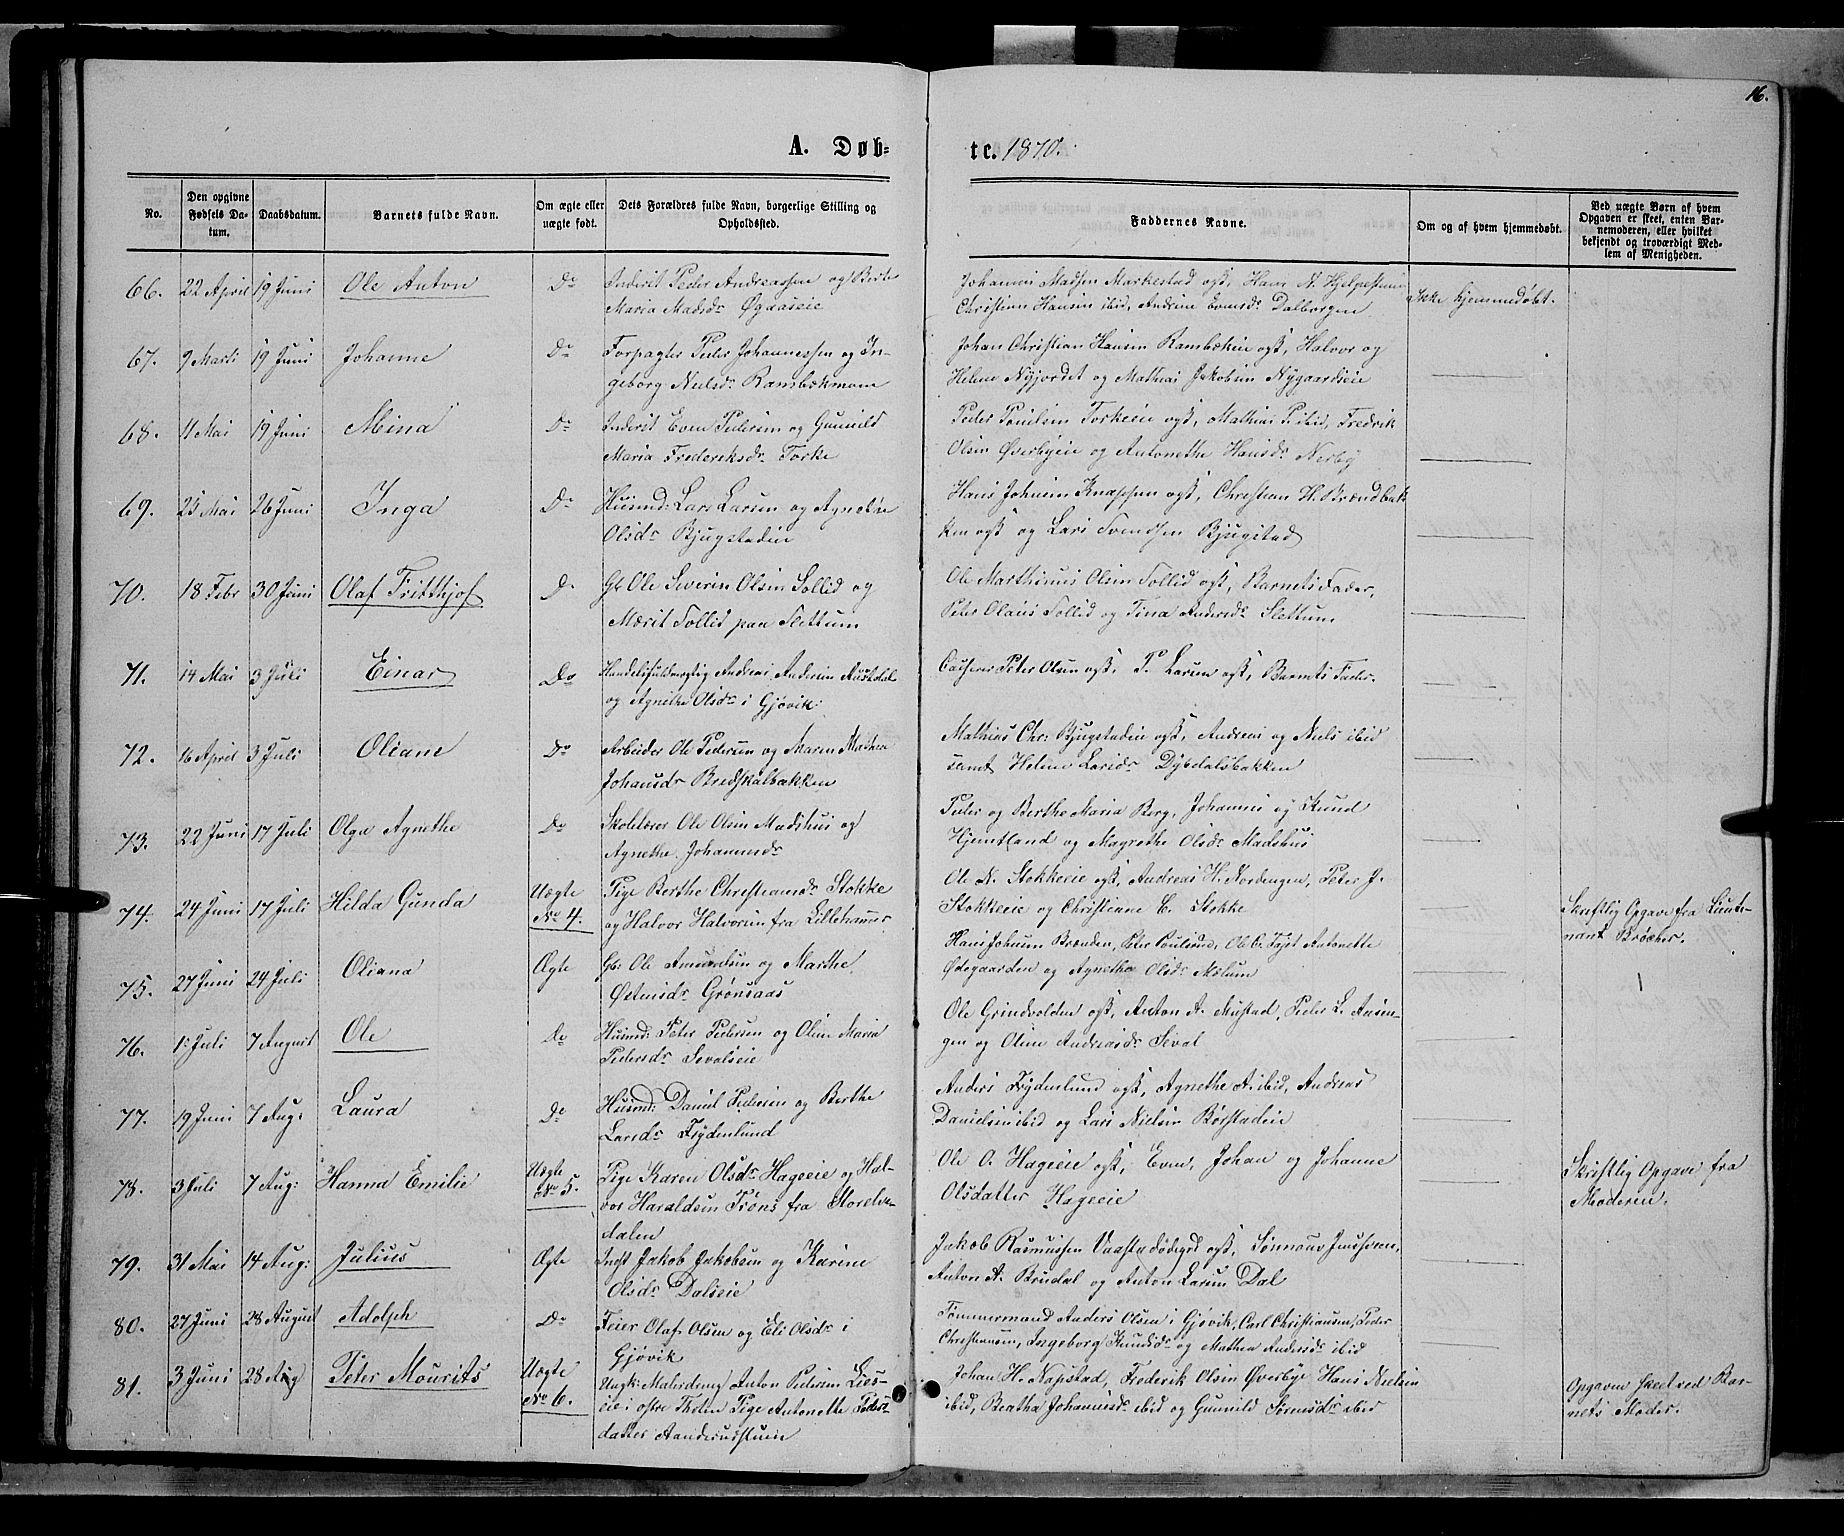 16.
A. Døb-
te. 1870.
No.
Den opgivne Fødsels Da-tum.
Daabsdatum.
Barnets fulde Navn.
Om ægte eller uægte født.
Dets Forældres fulde Navn, borgerlige Stilling og Opholdssted.
Faddernes Navne.
Om og af hvem hjemmedøbt.
Ved uægte Børn af hvem Opgaven er skeet, enten Barnemoderen, eller hvilket bekjendt og troværdigt Medlem af Menigheden.
66. 22 April 19 Juni Ole Anton Do Inderst Peder Andreassen og Berte
Maria Madsdr Øgaaseie
Johannes Madsen Markestad ogs, Hans N. Hjelpestuen
Christian Hansen ibid, Andrine Evensdr Dalborgen
Ikke hjemmedøbt.
67. 9 Marts 19 Juni Johanne Do Forpagter Peder Johannessen og In-
geborg Nielsdr Rambækmoen
Johan Christian Hansen Rambækeie ogs, Halvor og
Helene Nyjordet og Mathias Jakobsen Nygaardseie
68. 11 Mai 19 Juni Mina Do Inderst Even Pedersen og Gunnild
Maria Frederiksdr Torke
Peder Poulsen Torkeie ogs, Mathias P. ibid, Fredrik
Olsen Øverbyeie og Antonethe Hansdr Nerby
69. 25 Mai 26 Juni Inga Do Husmd: Lars Larsen og Agnethe
Olsdr Bjugstadeie
Hans Johnsen Knappen ogs, Christian H. Brændbak-
ken ogs og Lars Svendsen Bjugstad
70. 18 Febr 30 Juni Olaf Fritthjof Do Gb: Ole Severin Olsen Sollid og
Mærit Sollid paa Slettum
Ole Marthinus Olsen Sollid ogs, Barnets Fader,
Peter Olaus Sollid og Tina Andersdr Slettum
71. 14 Mai 3 Juli Einar Do Handelsfuldmægtig Andreas Andersen Austdal
og Agnethe Olsdr i Gjøvik
Casper Peter Olsen ogs, P. Larsen ogs, Barnets Fader.
72. 16 April 3 Juli Oliane Do Arbeider Ole Pedersen og Maren Mathea
Johansdr Bredskalbækken
Mathias Chr: Bjugstadeie ogs, Andreas og Niels ibid
samt Helene Larsdr Dybdalsbakken
73. 22 Juni 17 Juli Olga Agnethe Do Skolelærer Ole Olsen Madshus og
Agnethe Johannesdr
Peter og Berthe Maria Berg, Johannes og Knud
Hjemstland og Magrethe Olsdr Madshus
74. 24 Juni 17 Juli Hilda Gunda Uægte No 4. Pige Berthe Christiansdr Stokke
og Halvor Halvorsen fra Lillehamer
Ole N. Stokkeeie ogs, Andreas H. Nordengen, Peter J.
Stokkeeie og Christiane E. Stokke
Skriftlig Opgave fra Lieute-
nant Bröcher.
75. 27 Juni 24 Juli Oliana Ægte Gb: Ole Amundsen og Marthe
Østensdr Grønsaas
Hans Johnsen Brænden, Peter Poulsend, Ole O. Fast Antonette
Ødegaarden og Agnethe Olsdr Mælum
76. 1 Juli 7 August Ole Do Husmd: Peter Pedersen og Oline Maria
Pedersdr Sevalseie
Ole Grindvolden ogs, Anton A. Mustad, Peder L. Aasen-
gen og Oline Andreasdr Seval
77. 19 Juni 7 Aug: Laura Do Husmd: Daniel Pedersen og Berthe
Larsdr Frydenlund
Anders Frydenlund ogs, Agnethe A. ibid, Andreas
Danielsen ibid og Lars Nielsen Børstadeie
78. 3 Juli 7 Aug: Hanna Emilie Uægte No 5. Pige Karen Olsdr Hageeie og Hal-
vor Haraldsen Trøns fra Storelv-
dalen
Ole O. Hageeie ogs, Even, Johan og Johanne
Olsdatter Hageeie
Skriftlig Opgave fra
Moderen.
79. 31 Mai 14 Aug: Julius Ægte Indst Jakob Jakobsen og Karine
Olsdr Dalseie
Jakob Rasmussen Vaastadødeget ogs, Sønnauv Jenssveen,
Anton A. Brudal og Anton Larsen Dal
80. 27 Juni 28 August Adolph Do Feier Olaf Olsen og Eli Olsdr i
Gjøvik
Tømmermand Anders Olsen i Gjøvik, Carl Christiansen, Peder
Christiansen, Ingeborg Knudsdr og Mathea Andersdr ibid
81. 3 Juni 28 Aug Peter Mourits Uægte No 6. Ungk: Malerdreng Anton Pedersen Lies-
eie i østre Thoten Pige Antonette Peders-
datter Aanderudstuen
Johan H. Kapstad, Frederik Olsen Øverbye Hans Nielsen
ibid, Beatha Johannesdr ibid og Gunild Sørensdr ibid
Opgaven skeet ved Bar-
nets Moder.